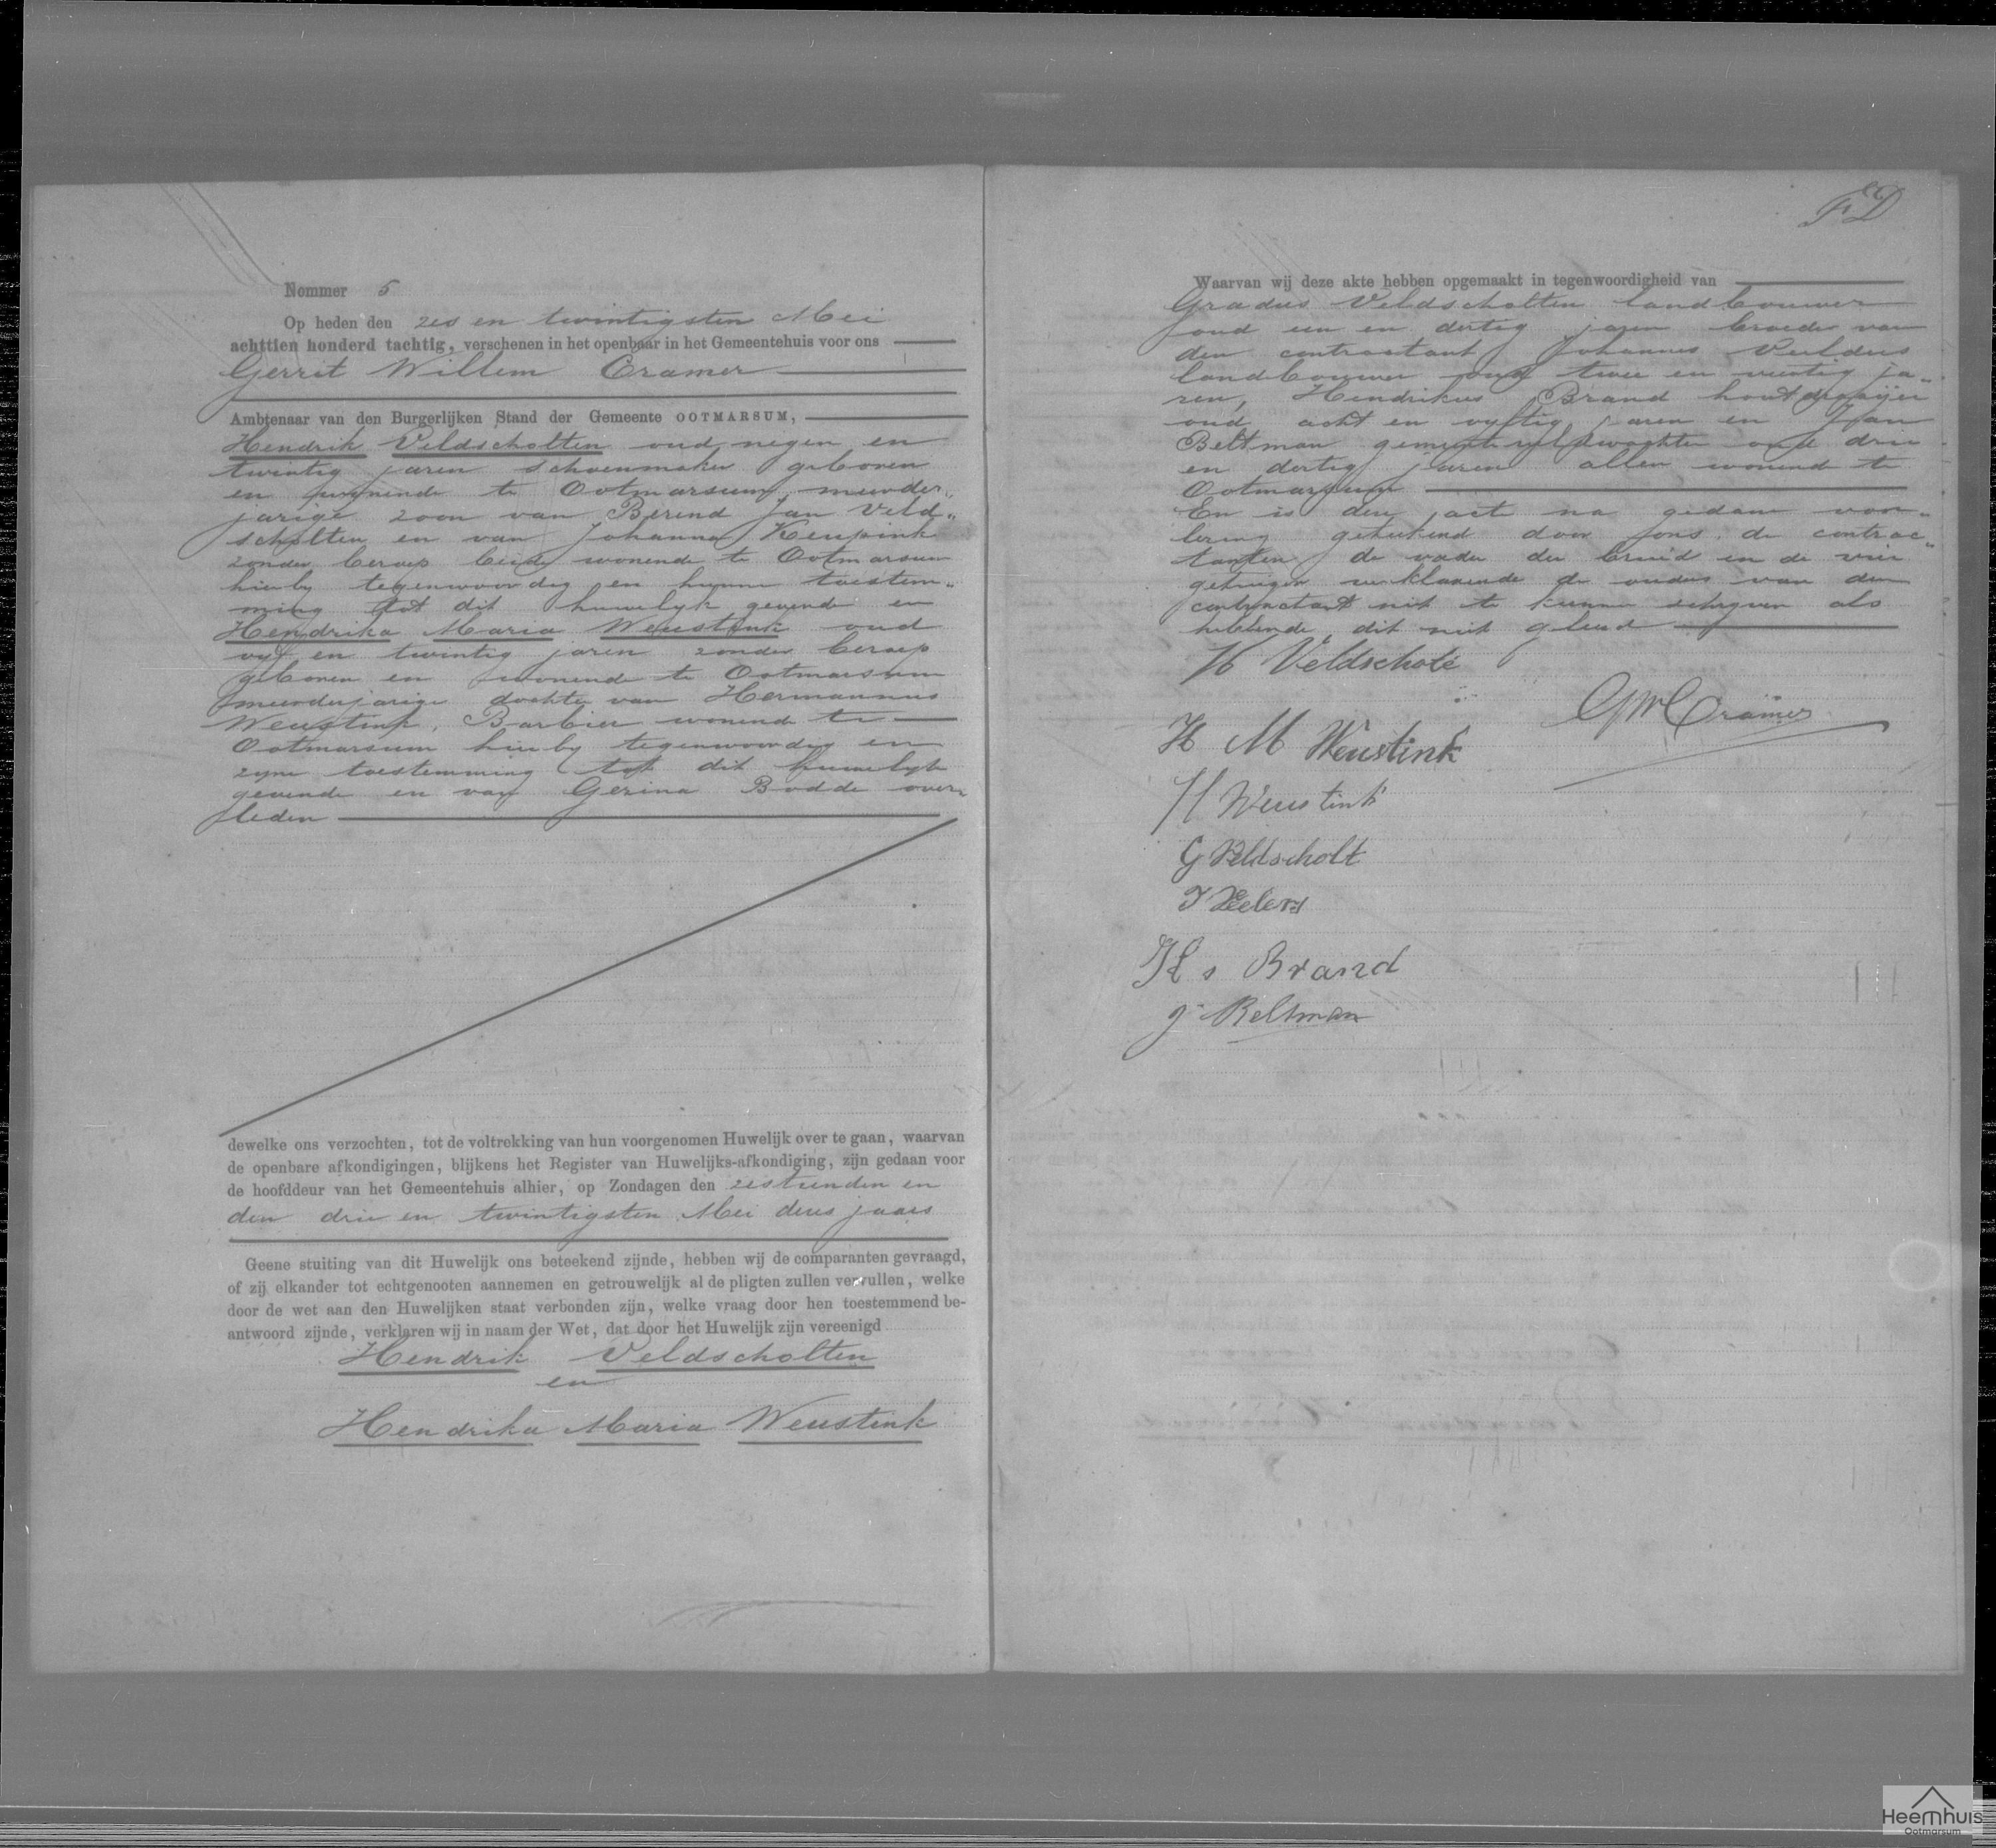 Nommer 5
Op heden den zes en twintigsten Mei
achttien honderd tachtig, verschenen in het openbaar in het Gemeentehuis voor ons
Gerrit Willem Cramer
Ambtenaar van den Burgerlijken Stand der Gemeente OOTMARSUM,
Hendrik Veldscholten oud negen en
twintig jaren schoenmaker geboren
en wonende te Ootmarsum, meerder„
jarige zoon van Berend Jan Veld„
scholten en van Johanna Keupink
zonder beroep beide wonende te Ootmarsum
hierby tegenwoordig en hunne toestem„
ming tot dit huwelyk gevende en
Hendrika Maria Weustink oud
vyf en twintig jaren zonder beroep
geboren en wonende te Ootmarsum
meerderjarige dochter van Hermannus
Weustink, Barbier wonende te
Ootmarsum hierby tegenwoordig en
zyne toestemming tot dit huwelyk
gevende en van Gerina Bodde over„
leden
dewelke ons verzochten, tot de voltrekking van hun voorgenomen Huwelijk over te gaan, waarvan
de openbare afkondigingen, blijkens het Register van Huwelijks-afkondiging, zijn gedaan voor
de hoofddeur van het Gemeentehuis alhier, op Zondagen den zestienden en
den drie en twintigsten Mei dezes jaars
Geene stuiting van dit Huwelijk ons beteekend zijnde, hebben wij de comparanten gevraagd,
of zij elkander tot echtgenooten aannemen en getrouwelijk al de pligten zullen vervullen, welke
door de wet aan den Huwelijken staat verbonden zijn, welke vraag door hen toestemmend be-
antwoord zijnde, verklaren wij in naam der Wet, dat door het Huwelijk zijn vereenigd
Hendrik Veldscholten
en
Hendrika Maria Weustink
Waarvan wij deze akte hebben opgemaakt in tegenwoordigheid van
Gradus Veldscholten landbouwer
oud een en dertig jaren broeder van
den contractant Johannes
landbouwer oud twee en veertig ja„
ren, Hendrikus Brand houtdraaijer
oud acht en vyftig jaren en Jan
Beltman oud drie
en dertig jaren allen wonende te
Ootmarsum
En is deze acte na gedane voor„
lezing geteekend door ons, de contrac„
tanten de vader der bruid en de vier
getuigen verklarende de ouders van den
contractant niet te kunnen schryven als
hebbende dit niet geleerd
H Veldscholte
GWCramer
H M Weustink
H Weustink
G Veldscholt
Hs Brand
J Beltman
Heemhuis
Ootmarsum